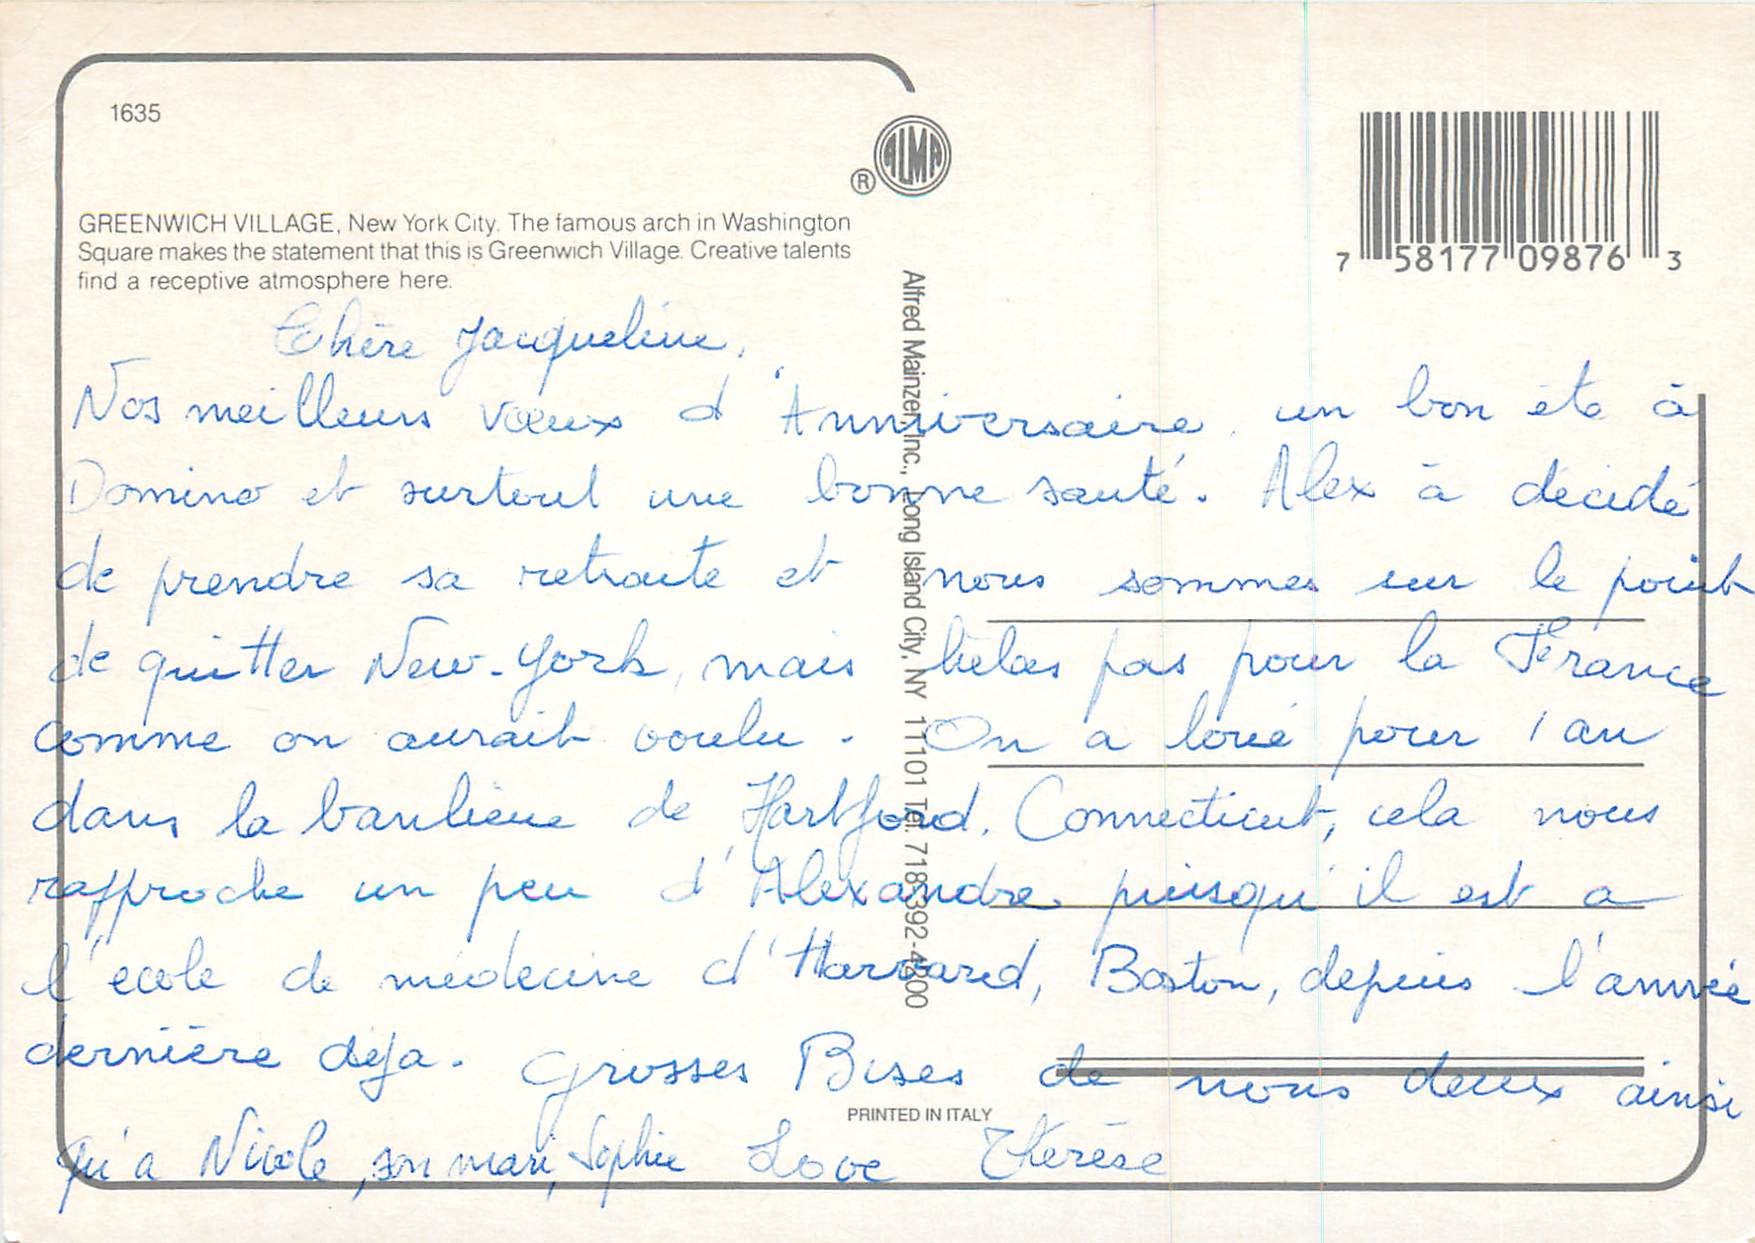 1635
ALMA
®
7 58177 09876 3
GREENWICH VILLAGE, New York City. The famous arch in Washington
Square makes the statement that this is Greenwich Village. Creative talents
find a receptive atmosphere here.
Alfred Mainzer, Inc., Long Island City, NY 11101 Tel. 718-392-4200
Chère Jacqueline,
Nos meilleurs vœux d'Anniversaire, un bon été à
Domino et surtout une bonne santé. Alex à décidé
de prendre sa retraite et nous sommes sur le point
de quitter New-York, mais hélas pas pour la France
comme on aurait voulu. On a loué pour 1 an
dans la banlieue de Hartford, Connecticut, cela nous
rapproche un peu d'Alexandre puisqu'il est a
l'école de médecine d'Harvard, Boston, depuis l'année
dernière déja. Grosses Bises de nous deux ainsi
qu'a Nicole, son mari, Sophie Love Thérèse
PRINTED IN ITALY